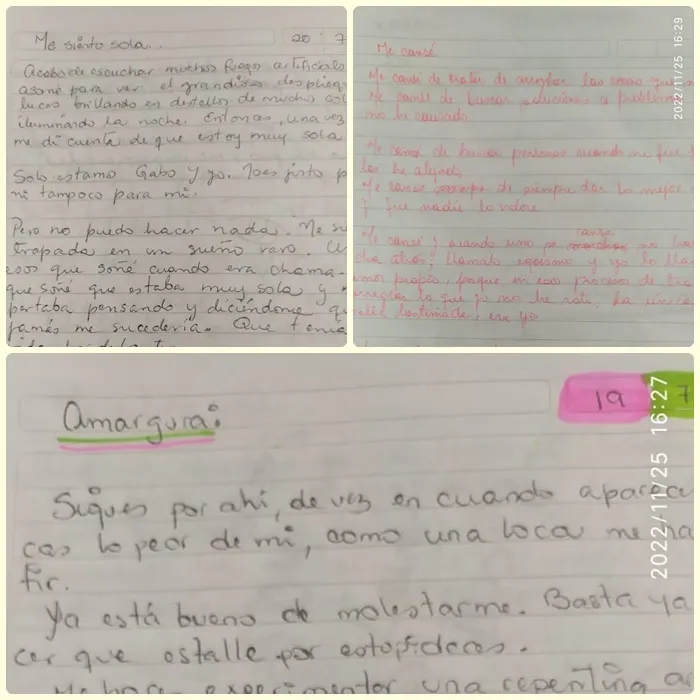 Me siento sola...
20 7
Acabo de escuchar muchos fuegos artificiales
asomé para ver el grandioso desplieg
luces brillando en destellos de muchos col
iluminando la noche. Entonces, una vez
me di cuenta de que estoy muy sola
Solo estamo Gabo y yo. No es justo p
ni tampoco para mi.
Pero no puedo hacer nada. Me si
trapada en un sueño raro. U
esos que soñé cuando era chama.
que soñé que estaba muy sola y
pertaba pensando y diciéndome q
jamás me sucedería. Que tenia
2022/11/25 16:29
Me cansé
Me cansé de tratar de arreglar las cosas que n
Me cansé de buscar soluciones a problema
no he causado
Me cansé de buscar personas cuando no fui
las he alejado
Me cansé de siempre dar lo mejor
Y que nadie lo valore
Me cansé y cuando uno se cansa no
atras, llamalo egoismo y yo lo lla
amor propio, porque en ese proceso de tra
arreglar lo que yo no he roto, la unica
lastimada, era yo
2022/11/25 16:27
19 7
Amargura:
Sigues por ahí, de vez en cuando aparece
cas lo peor de mi, como una loca me ha
fir.
Ya está bueno de molestarme. Basta ya
cer que estalle por estupideces.
Me hace experimentar una repentina